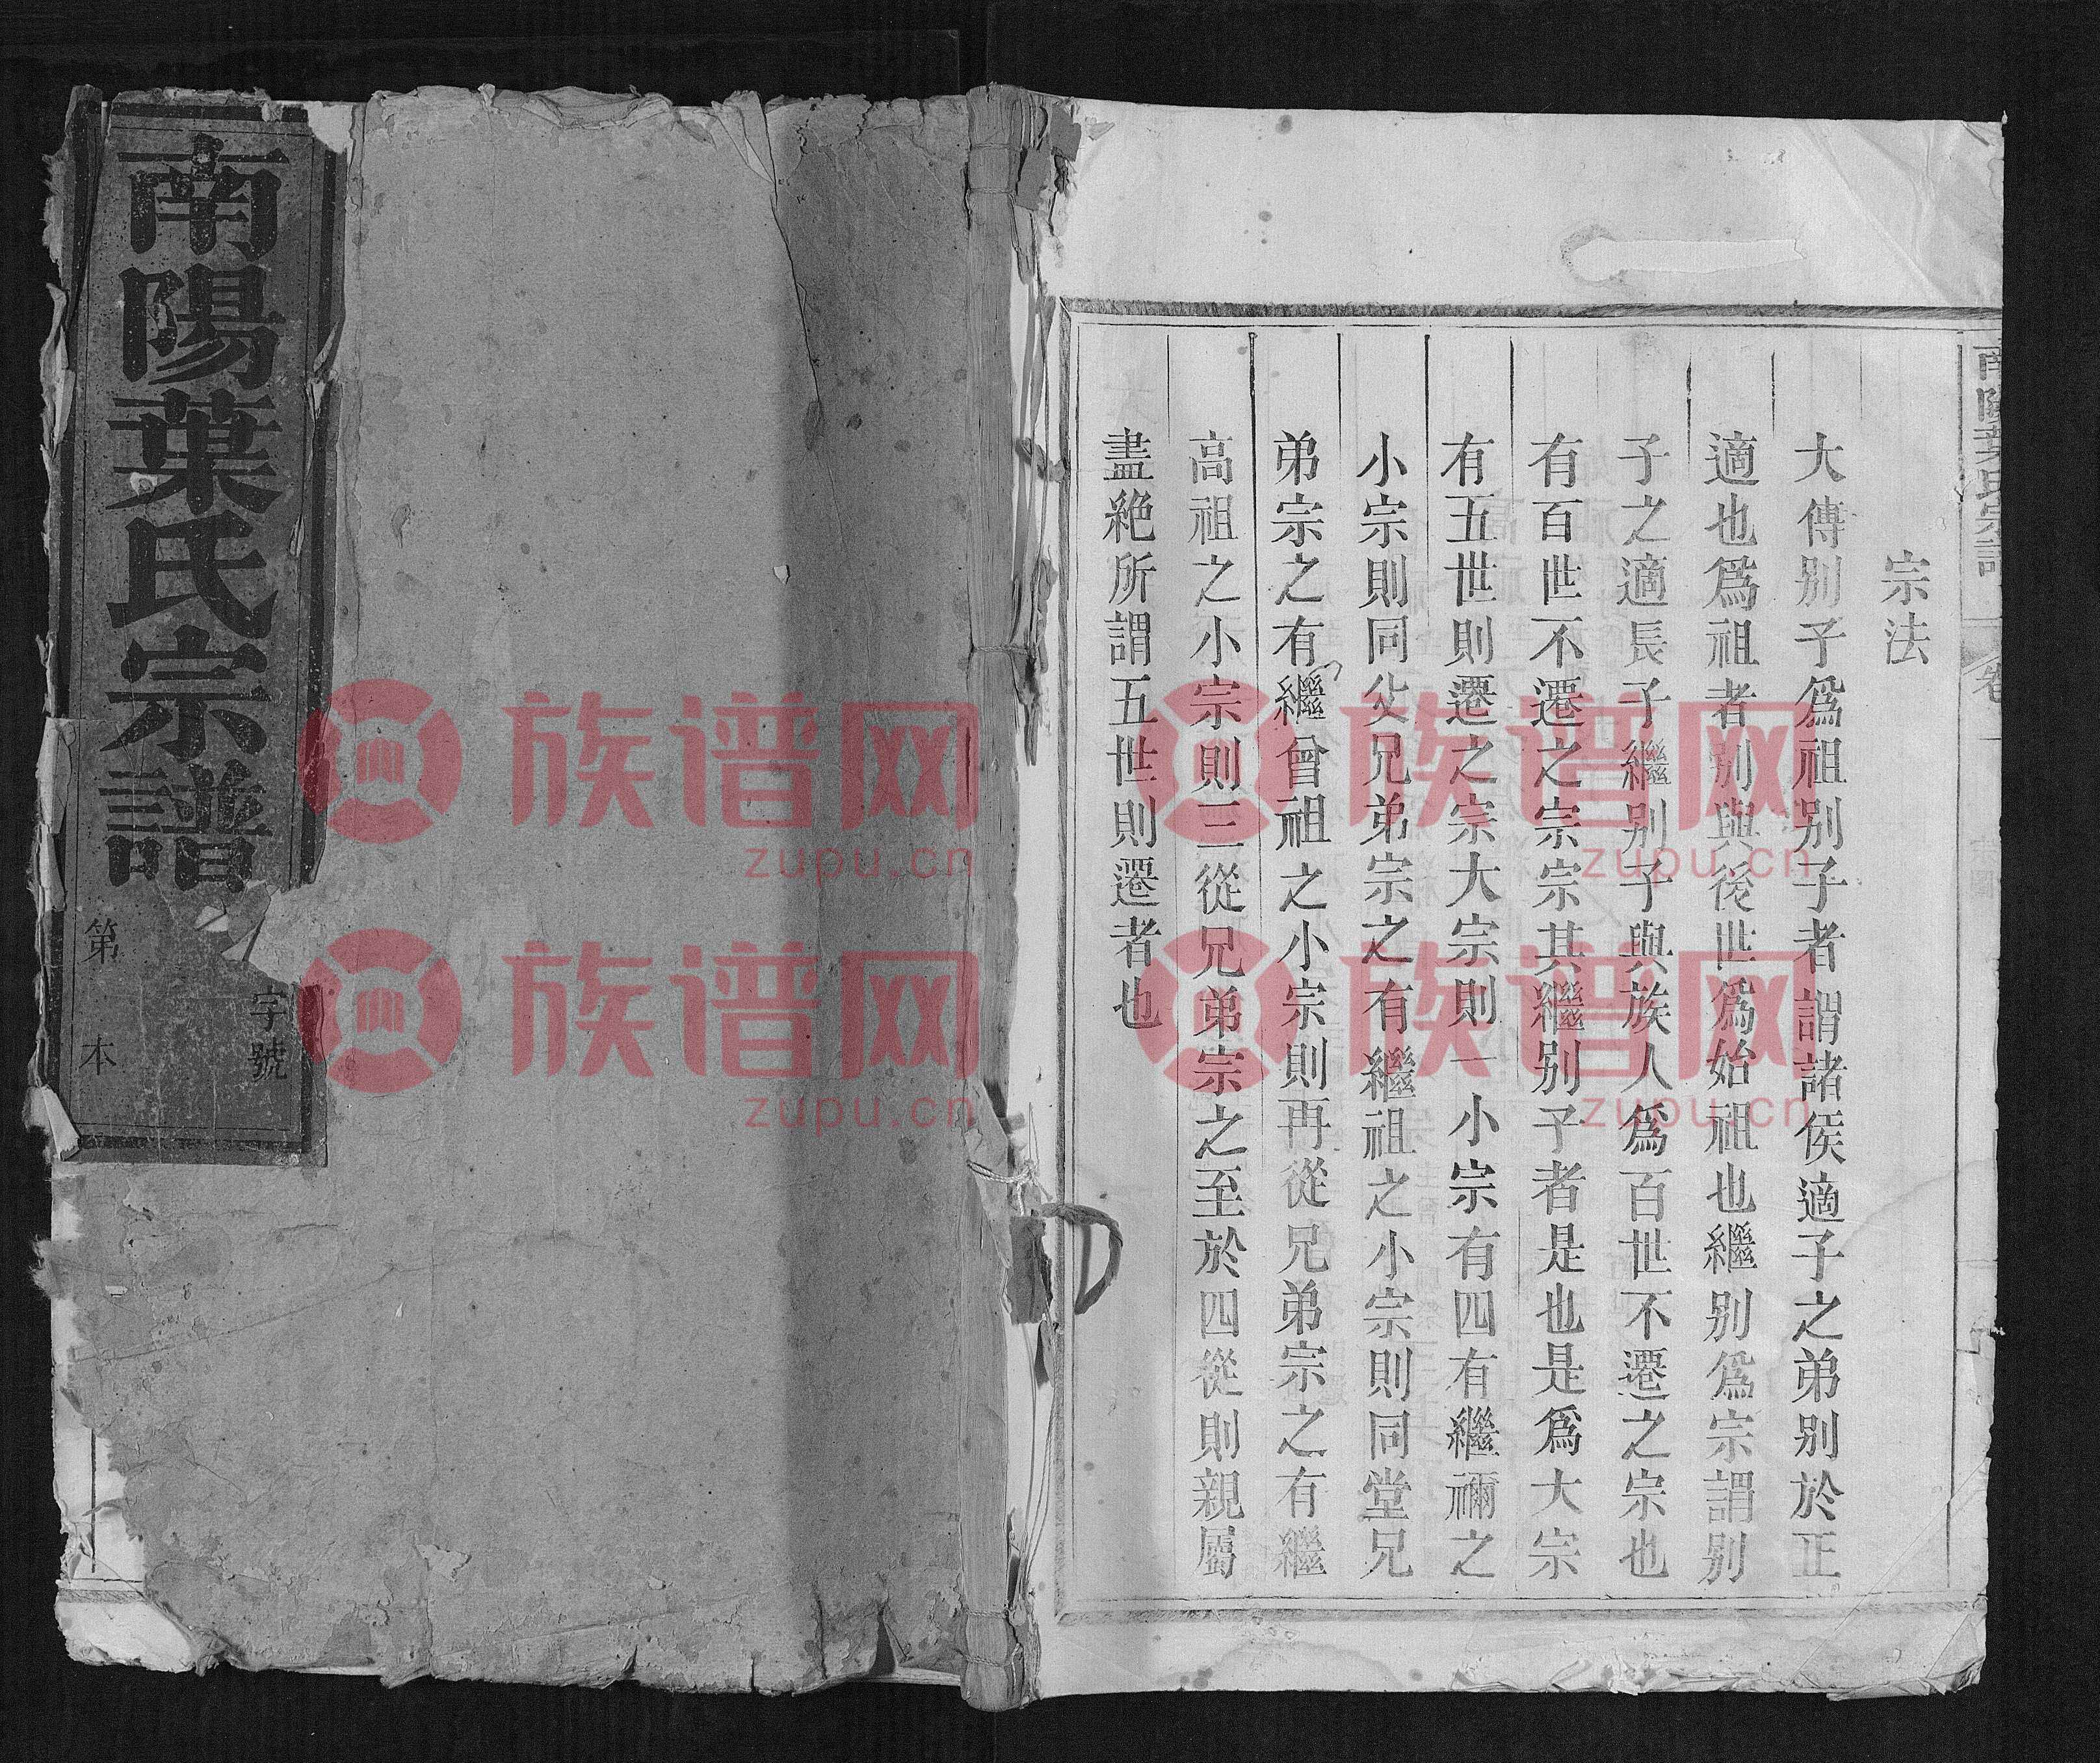 南陽葉氏宗譜
字號
第 本
宗法
大傳別子爲祖別子者謂諸侯適子之弟别於正
適也爲祖者别與後世爲始祖也繼别爲宗謂别
子之適長子繼别子與族人爲百世不遷之宗也
有百世不遷之宗宗其繼别子者是也是爲大宗
有五世則遷之宗大宗則一小宗有四有繼禰之
小宗則同父兄弟宗之有繼祖之小宗則同堂兄
弟宗之有繼曾祖之小宗則再從兄弟宗之有繼
高祖之小宗則三從兄弟宗之至於四從則親屬
盡絶所謂五世則遷者也
族谱网
zupu.cn
族谱网
zupu.cn
族谱网
zupu.cn
族谱网
zupu.cn